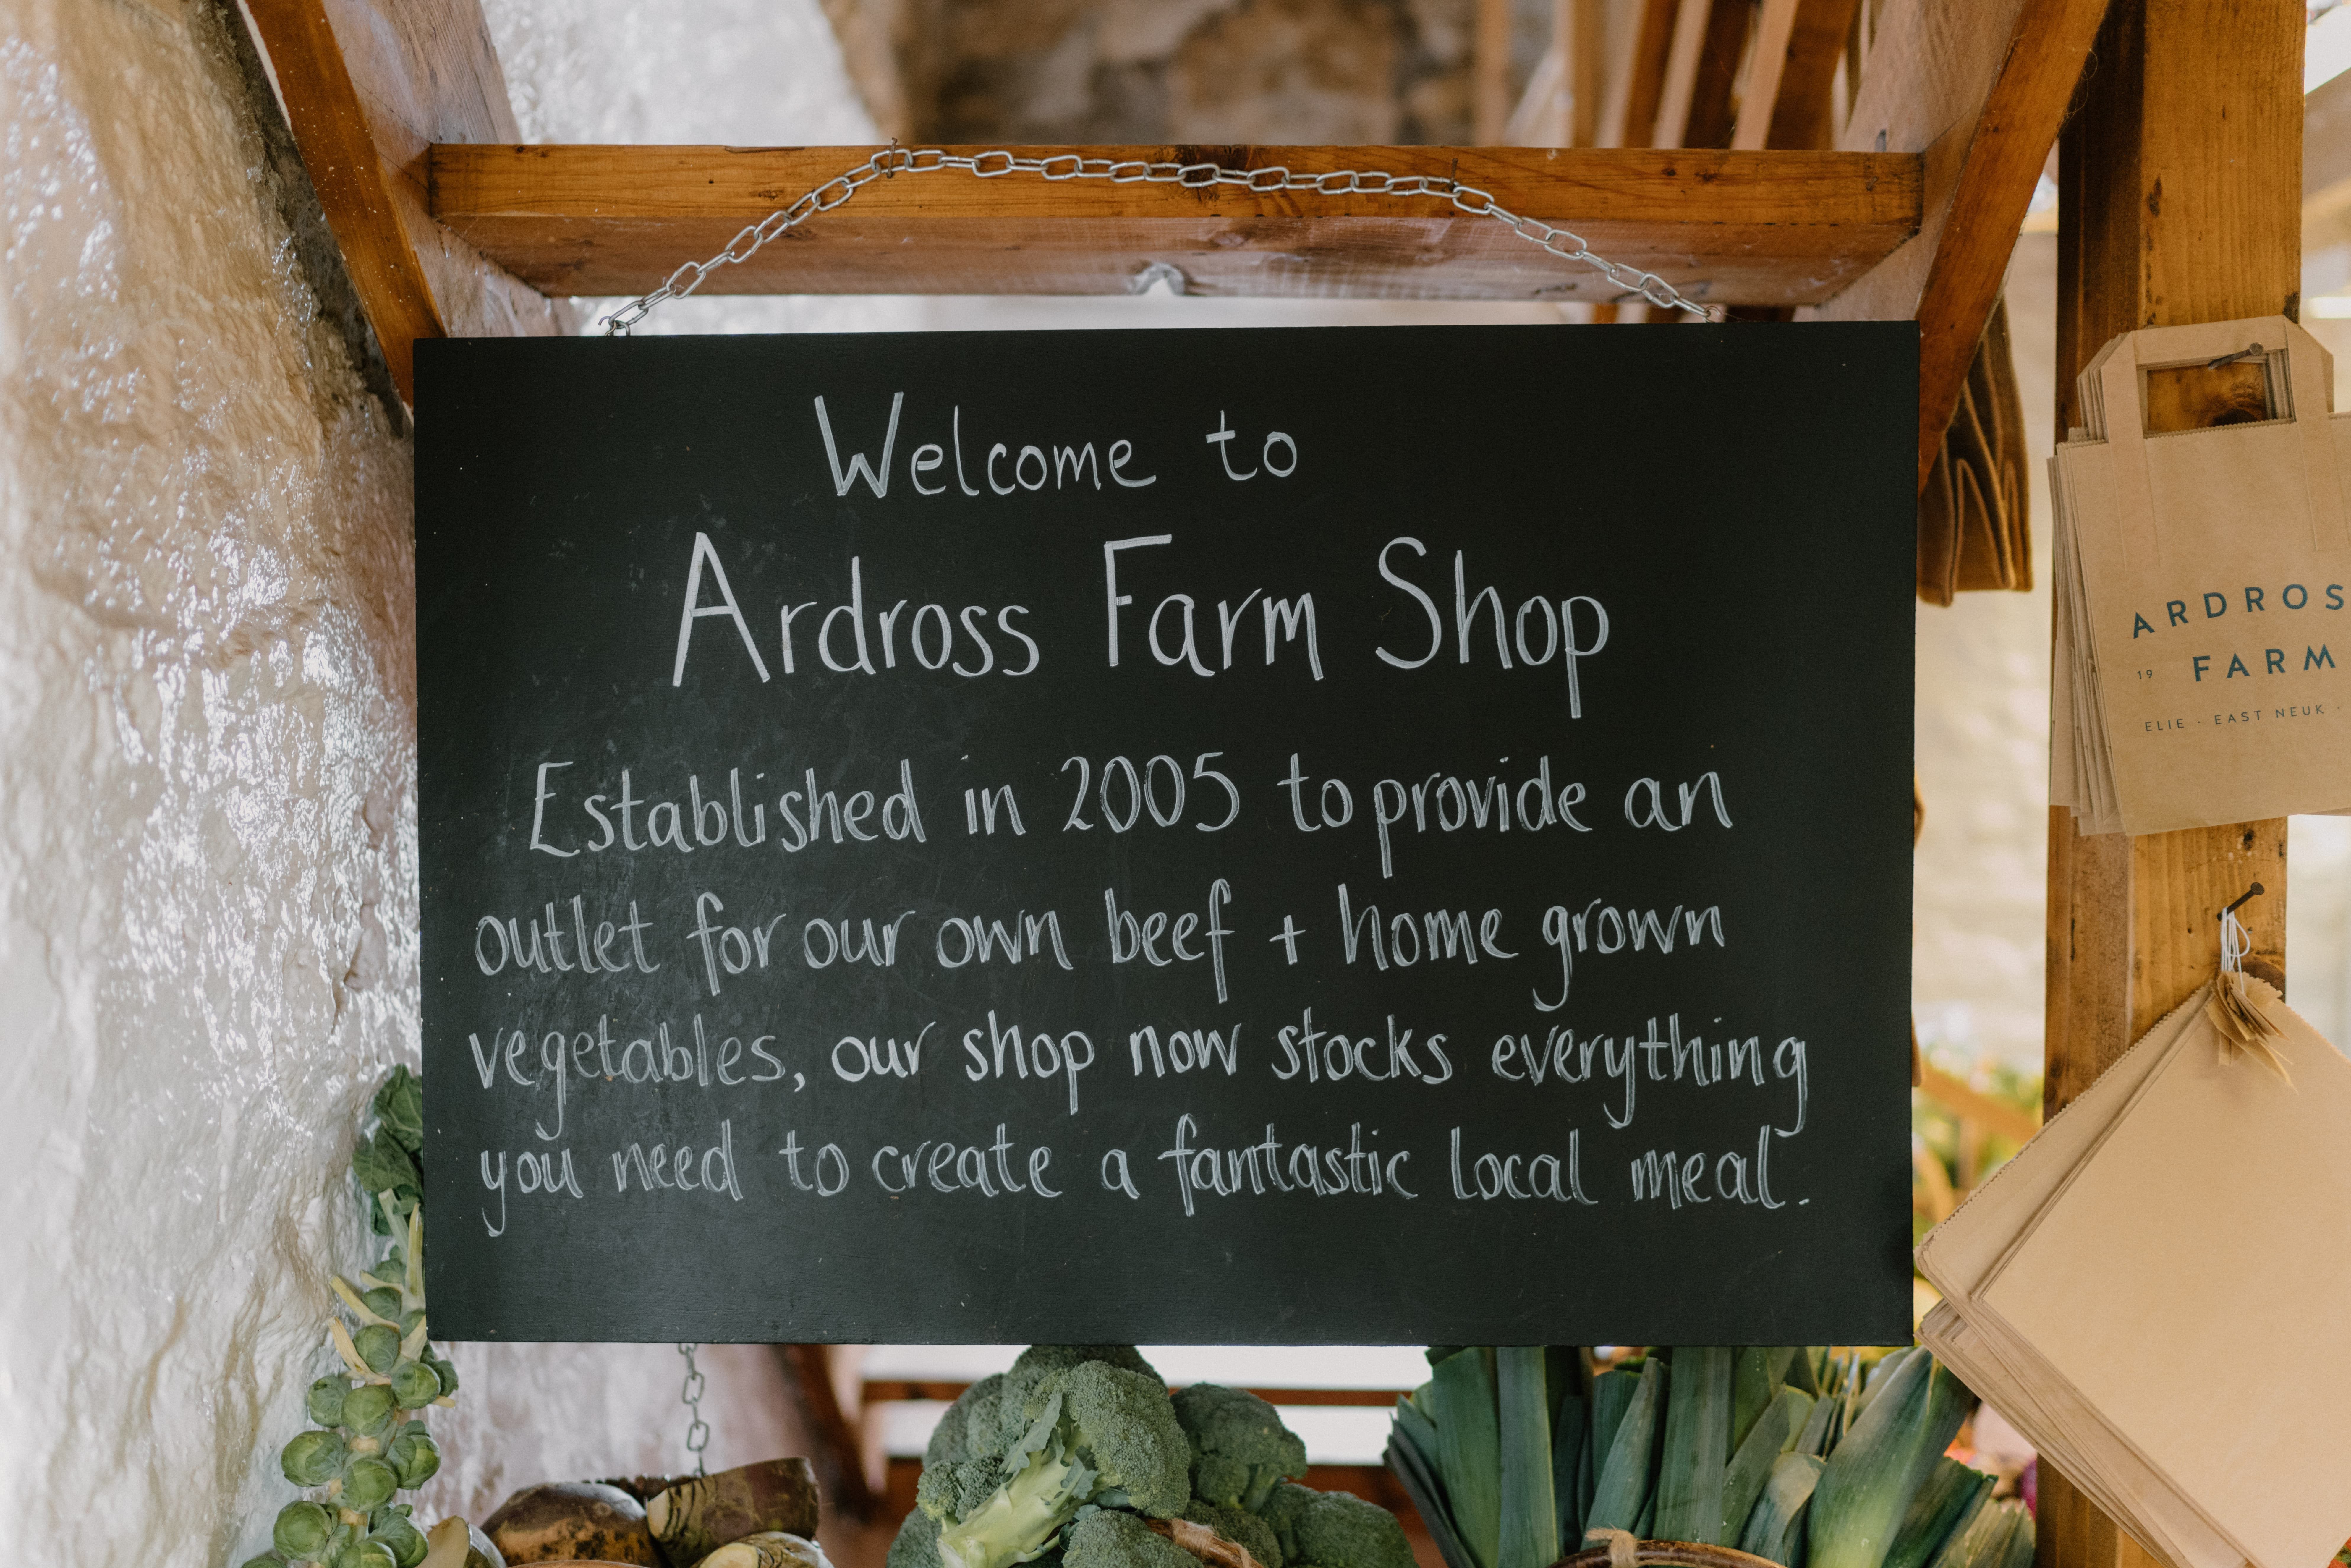 Welcome to
Ardross Farm Shop
Established in 2005 to provide an
outlet for our own beef + home grown
vegetables, our shop now stocks everything
you need to create a fantastic local meal.
ARDROS
19 FARM
ELIE · EAST NEUK ·